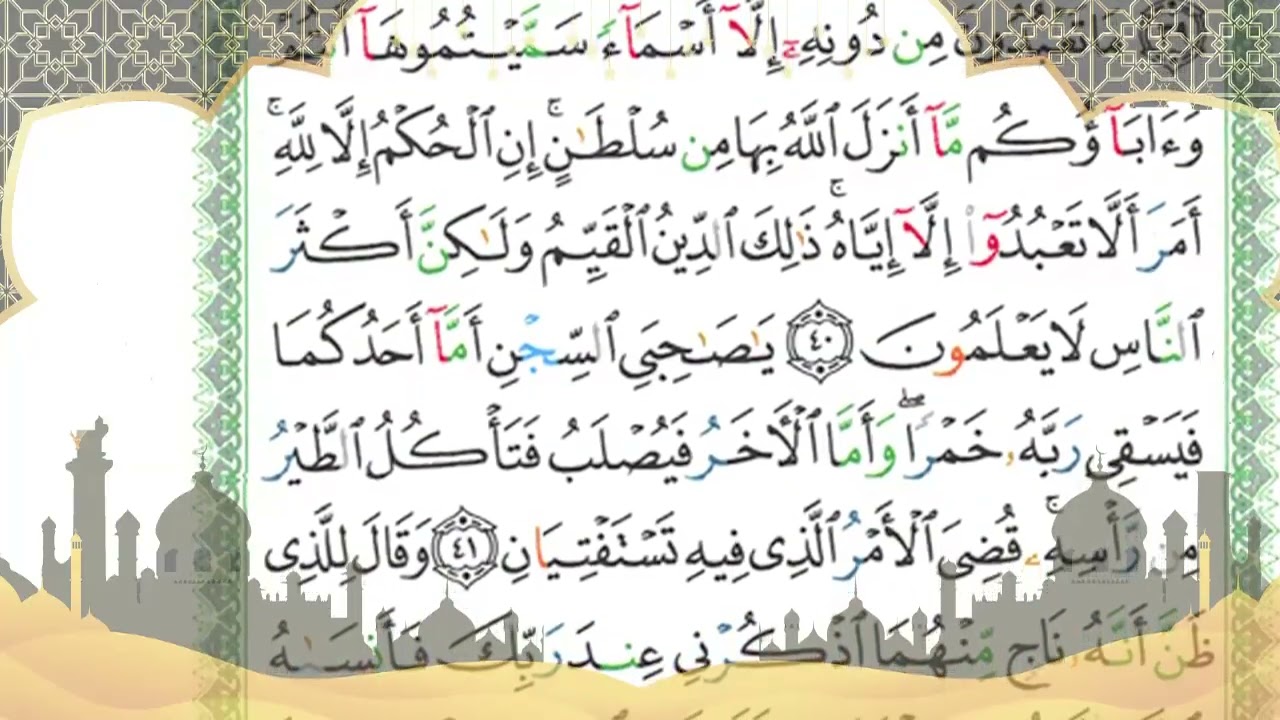 مَا تَعۡبُدُونَ مِن دُونِهِۦٓ إِلَّآ أَسۡمَآءٗ سَمَّيۡتُمُوهَآ أَنتُمۡ
وَءَابَآؤُكُم مَّآ أَنزَلَ ٱللَّهُ بِهَا مِن سُلۡطَٰنٍۚ إِنِ ٱلۡحُكۡمُ إِلَّا لِلَّهِۚ
أَمَرَ أَلَّا تَعۡبُدُوٓاْ إِلَّآ إِيَّاهُۚ ذَٰلِكَ ٱلدِّينُ ٱلۡقَيِّمُ وَلَٰكِنَّ أَكۡثَرَ
ٱلنَّاسِ لَا يَعۡلَمُونَ ٤٠ يَٰصَٰحِبَيِ ٱلسِّجۡنِ أَمَّآ أَحَدُكُمَا
فَيَسۡقِي رَبَّهُۥ خَمۡرٗاۖ وَأَمَّا ٱلۡأٓخَرُ فَيُصۡلَبُ فَتَأۡكُلُ ٱلطَّيۡرُ
مِن رَّأۡسِهِۦۚ قُضِيَ ٱلۡأَمۡرُ ٱلَّذِي فِيهِ تَسۡتَفۡتِيَانِ ٤١ وَقَالَ لِلَّذِي
ظَنَّ أَنَّهُۥ نَاجٖ مِّنۡهُمَا ٱذۡكُرۡنِي عِندَ رَبِّكَ فَأَنسَىٰهُ